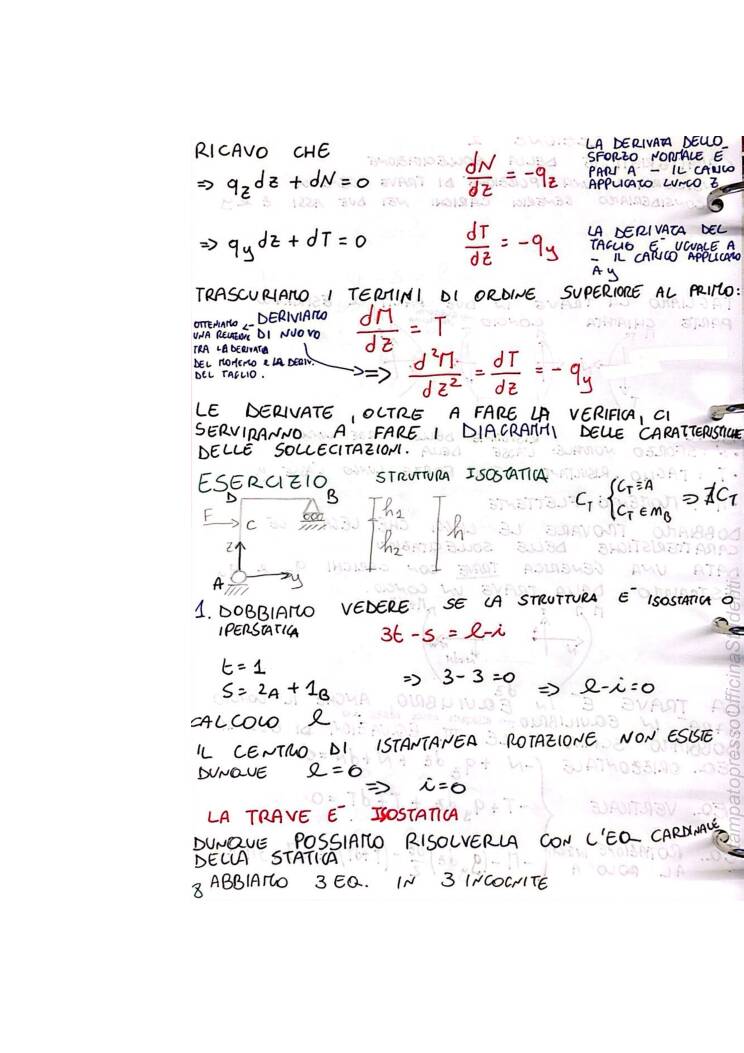 RICAVO CHE
⇒ qz dz + dN = 0
dN/dz = -qz
LA DERIVATA DELLO
SFORZO NORMALE È
PARI A - IL CARICO
APPLICATO LUNGO Z
⇒ qy dz + dT = 0
dT/dz = -qy
LA DERIVATA DEL
TAGLIO E' UGUALE A
- IL CARICO APPLICATO
A y
TRASCURIAMO I TERMINI DI ORDINE SUPERIORE AL PRIMO:
dM/dz = T
DERIVIAMO
DI NUOVO
OTTENIAMO
UNA RELAZIONE
TRA LA DERIVATA
DEL MOMENTO E LA DERIV.
DEL TAGLIO.
=> d²M/dz² = dT/dz = - qy
LE DERIVATE, OLTRE A FARE LA VERIFICA, CI
SERVIRANNO A FARE I DIAGRAMMI DELLE CARATTERISTICHE
DELLE SOLLECITAZIONI.
ESERCIZIO STRUTTURA ISOSTATICA
D B
F C
z
A y
h1
h2
h
CT : { CT ≡ A
CT ∈ mB
⇒ ∄ CT
1. DOBBIAMO VEDERE SE LA STRUTTURA E' ISOSTATICA O
IPERSTATICA 3t - s = l - i
t = 1
S = 2A + 1B
⇒ 3 - 3 = 0 ⇒ l - i = 0
CALCOLO l :
IL CENTRO DI ISTANTANEA ROTAZIONE NON ESISTE
DUNQUE l = 0
⇒ i = 0
LA TRAVE E' ISOSTATICA
DUNQUE POSSIAMO RISOLVERLA CON L'EQ CARDINALE
DELLA STATICA
ABBIAMO 3 EQ. IN 3 INCOGNITE
8